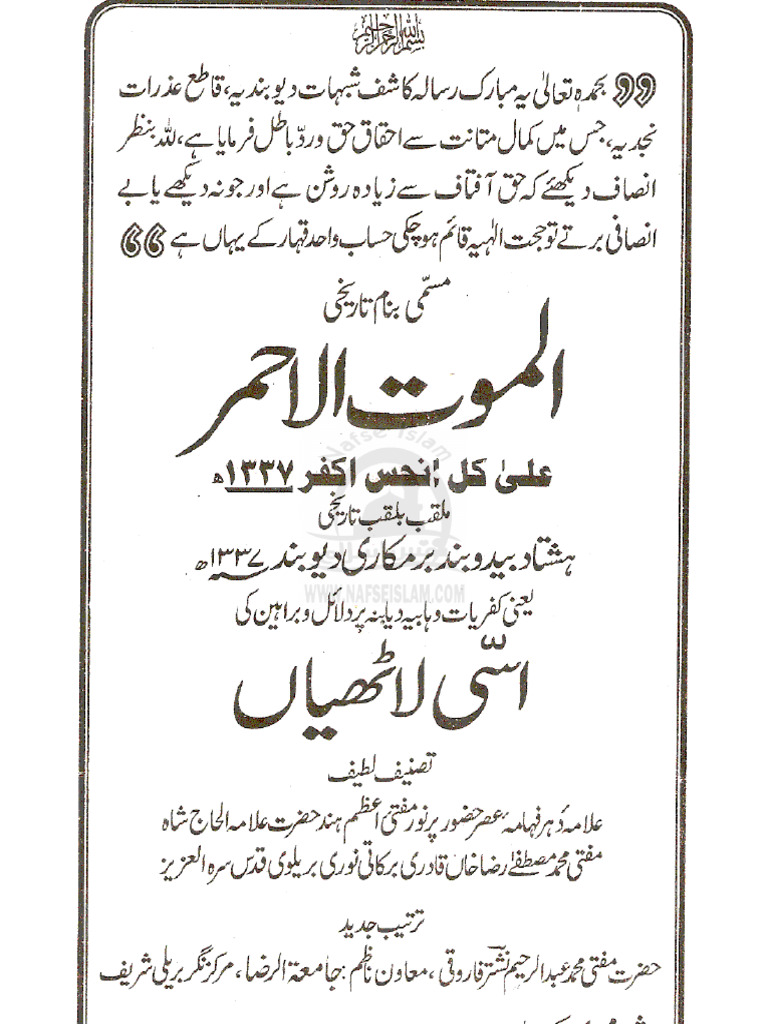 بسم اللہ الرحمن الرحیم
بحمدہٖ تعالیٰ یہ مبارک رسالہ کاشف شبہات دیوبندیہ، قاطع عذرات
نجدیہ، جس میں کمال متانت سے احقاق حق ورد باطل فرمایا ہے، للہ بنظر
انصاف دیکھئے کہ حق آفتاف سے زیادہ روشن ہے اور جو نہ دیکھے یا بے
انصافی برتے تو حجت الٰہیہ قائم ہوچکی حساب واحد قہار کے یہاں ہے
مسمّی بنام تاریخی
الموت الاحمر
علیٰ کل انحس اکفر ۱۳۳۷ھ
ملقب بلقب تاریخی
ہشتاد بیدوبند بر مکاری دیوبند ۱۳۳۷ھ
یعنی کفریات وہابیہ دیابنہ پر دلائل و براہین کی
اسّی لاٹھیاں
تصنیف لطیف
علامہ دہر فہامہ عصر حضور پر نور مفتئ اعظم ہند حضرت علامہ الحاج شاہ
مفتی محمد مصطفےٰ رضا خاں قادری برکاتی نوری بریلوی قدس سرہ العزیز
ترتیب جدید
حضرت مفتی محمد عبدالرحیم نشتر فاروقی، معاون ناظم: جامعۃ الرضا، مرکز نگر بریلی شریف
Nafse Islam
WWW.NAFSEISLAM.COM